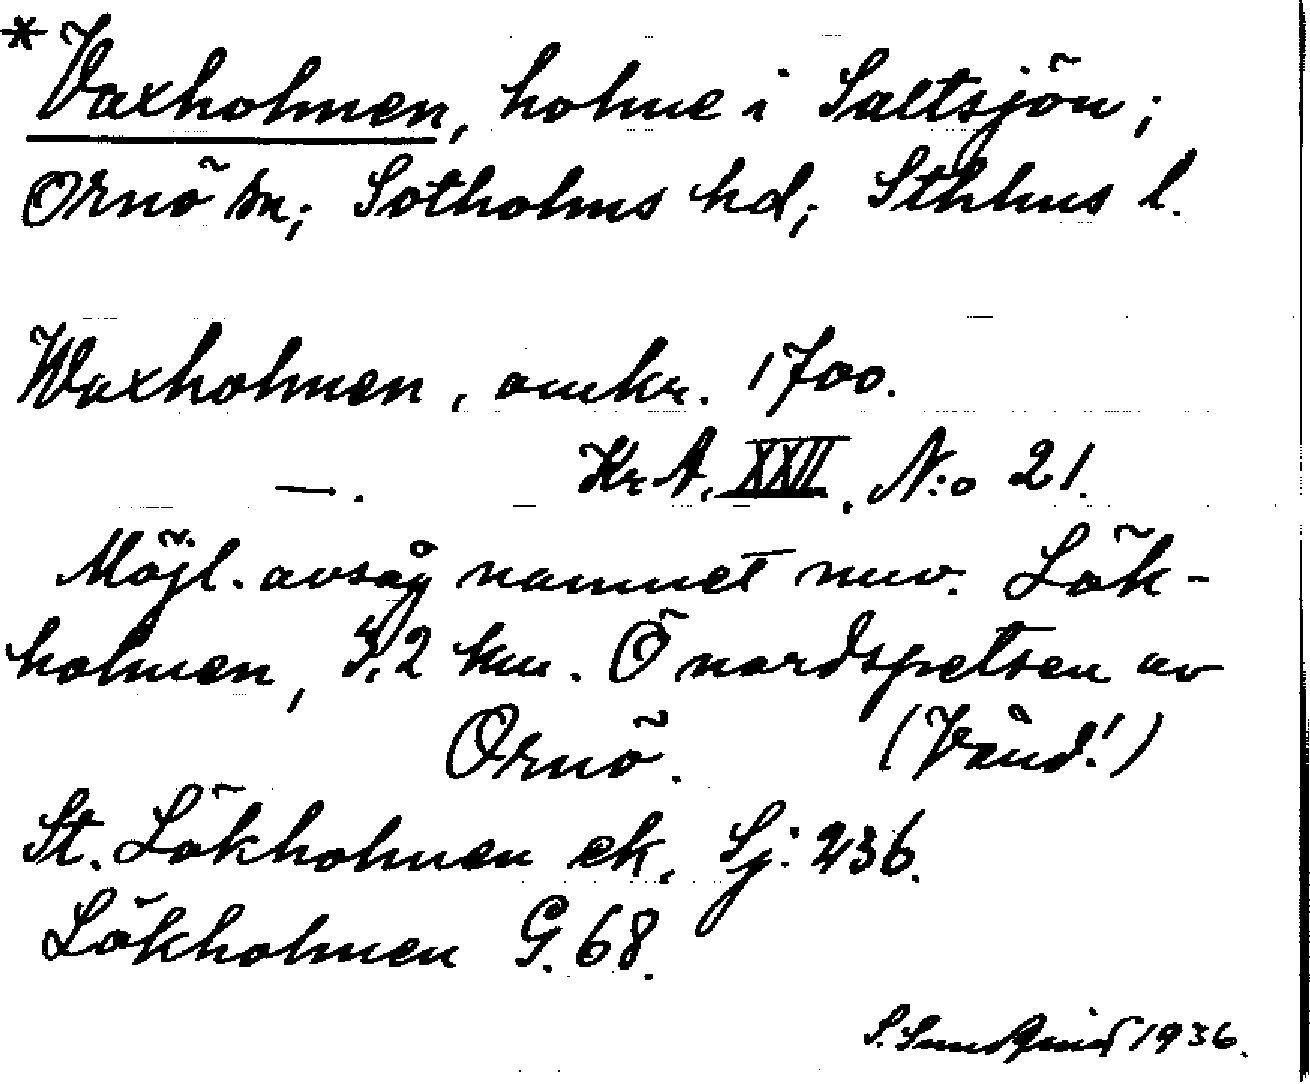 *Vaxholmen, holme i Saltsjön;
Ornö sn; Sotholms hd; Sthlms l.
Waxholmen, omkr. 1700.
—. Kr. A. XXII, N:o 21.
Möjl. avsåg namnet nuv. Lök-
holmen, 3,2 km. Ö nordspetsen av
Ornö. (Vänd!)
St. Lökholmen ek. Sj: 236.
Lökholmen G. 68.
S. Sundquist 1936.